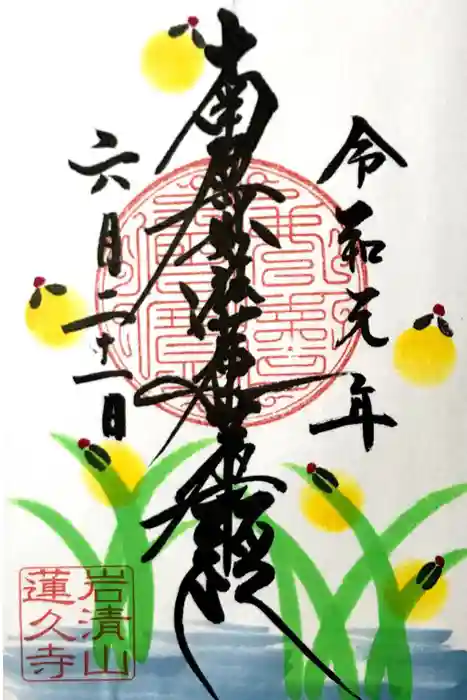 令和元年
南無妙法蓮華経
六月二十一日
岩清山
蓮久寺